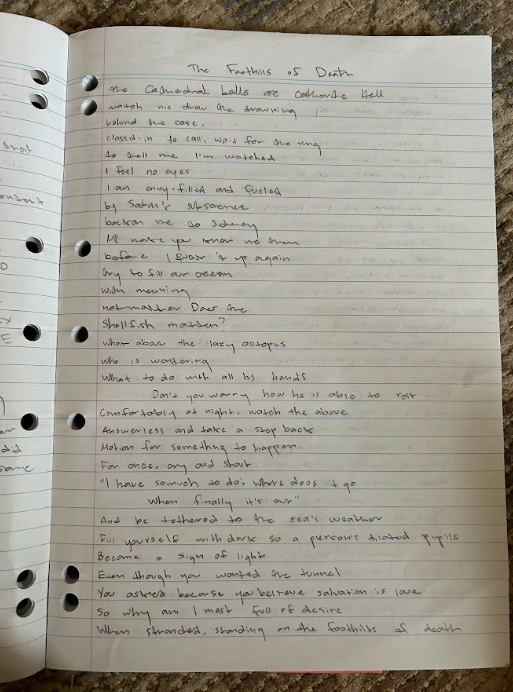 The Foothills of Death
the Cathedral balls are Cathartic Hell
watch me draw the drowning,
behind the case,
closed-in to call, wait for the ring
to tell me I'm watched
I feel no eyes
I am envy-filled and fueled
by Satan's
beckon me to Sidney
I'll make you know me then
before I it up again
try to fill our ocean
with meaning
no matter. Does the
shellfish matter?
what about the lazy octopus
who is wondering
What to do with all his hands
Don't you worry how he is able to rest
Comfortably at night, watch the above
Answerless and take a step back
Motion for something to happen
For once, cry and shout
"I have so much to do, where does it go
When finally it's our"
And be tethered to the sea's weather
Fill yourself with dark so a person's dilated pupils
Become a sign of light
Even though you wanted the tunnel
You asked because you believe salvation is love
So why am I most full of desire
When stranded, standing on the foothills of death